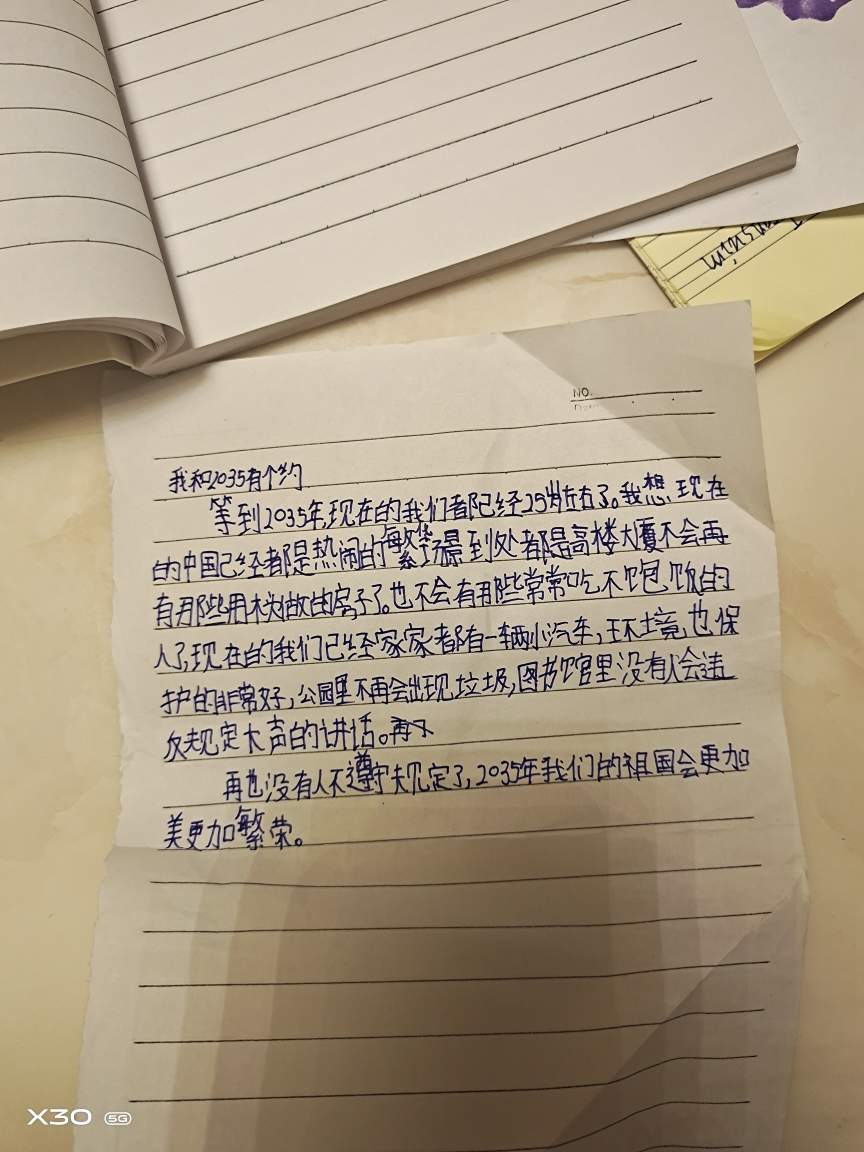 NO.
我和2035有个约
等到2035年,现在的我们都已经25岁左右了。我想现在
的中国已经都是热闹的繁华场景到处都是高楼大厦不会再
有那些用木头做的房子了。也不会有那些常常吃不饱饭的
人了,现在的我们已经家家都有一辆小汽车,环境,也保
护的非常好,公园里不再会出现垃圾,图书馆里没有人会违
反规定大声的讲话。
再也没有人不遵守规定了,2035年我们的祖国会更加
美更加繁荣。
X30 5G